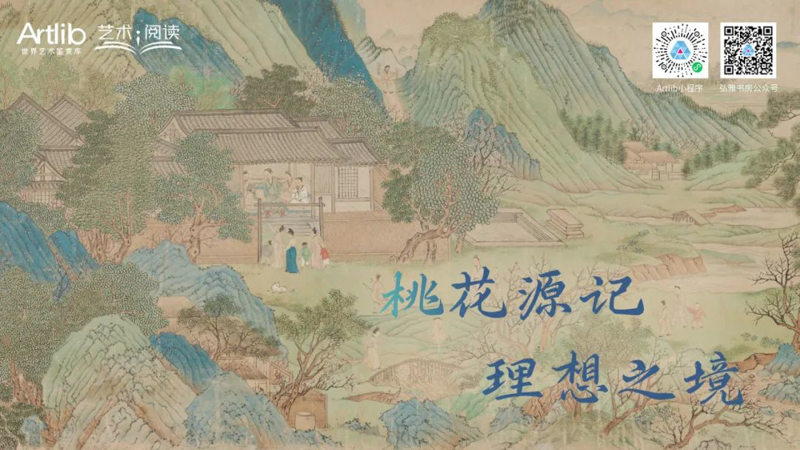 Artlib 艺术;阅读
世界艺术鉴赏库
Artlib小程序
弘雅书房公众号
桃花源记
理想之境